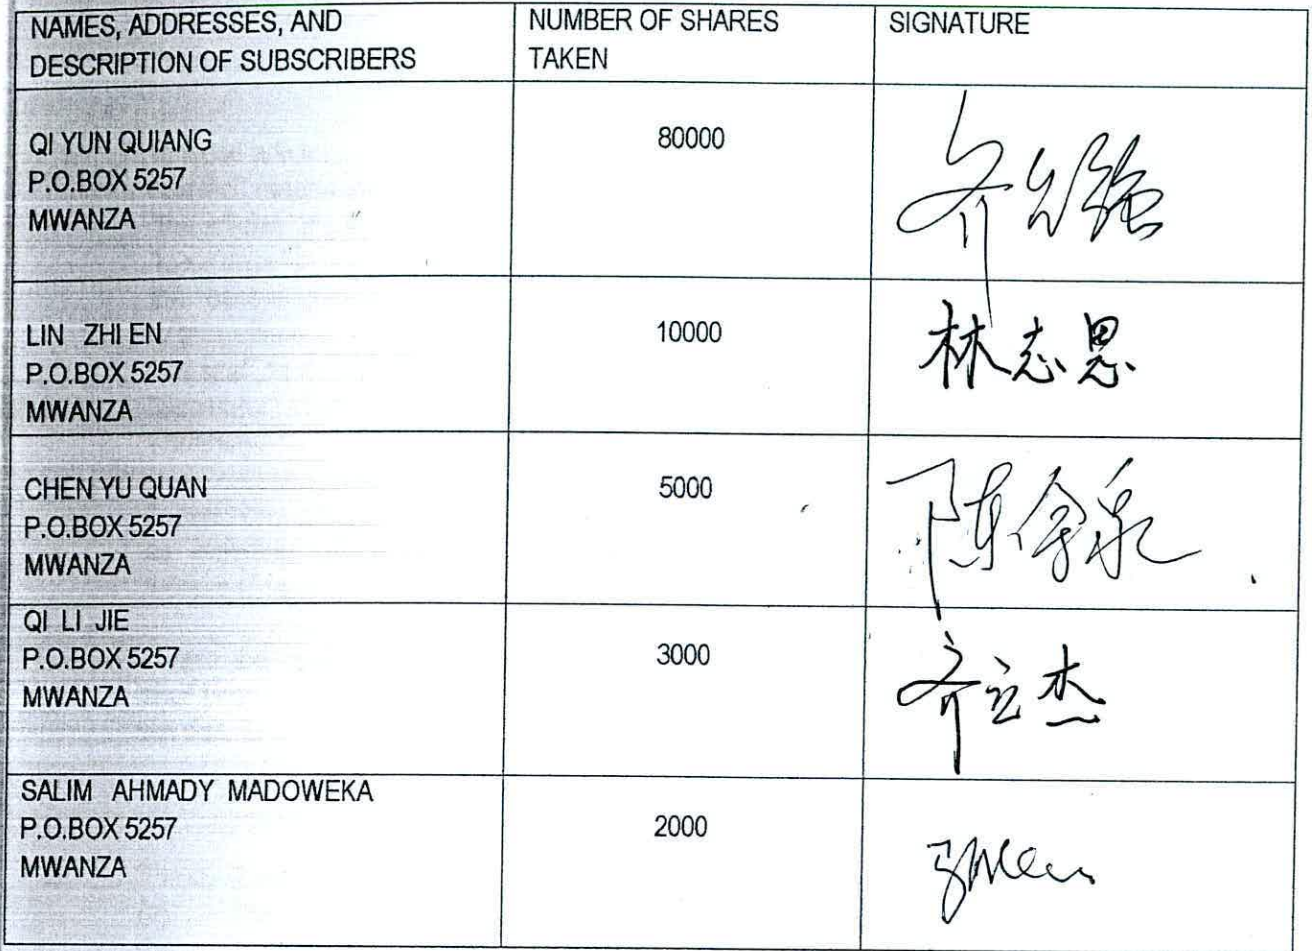 NAMES, ADDRESSES, AND
DESCRIPTION OF SUBSCRIBERS
NUMBER OF SHARES
TAKEN
SIGNATURE
QI YUN QUIANG
P.O.BOX 5257
MWANZA
80000
齐允强
LIN ZHI EN
P.O.BOX 5257
MWANZA
10000
林志恩
CHEN YU QUAN
P.O.BOX 5257
MWANZA
5000
陈余泉
QI LI JIE
P.O.BOX 5257
MWANZA
3000
齐立杰
SALIM AHMADY MADOWEKA
P.O.BOX 5257
MWANZA
2000